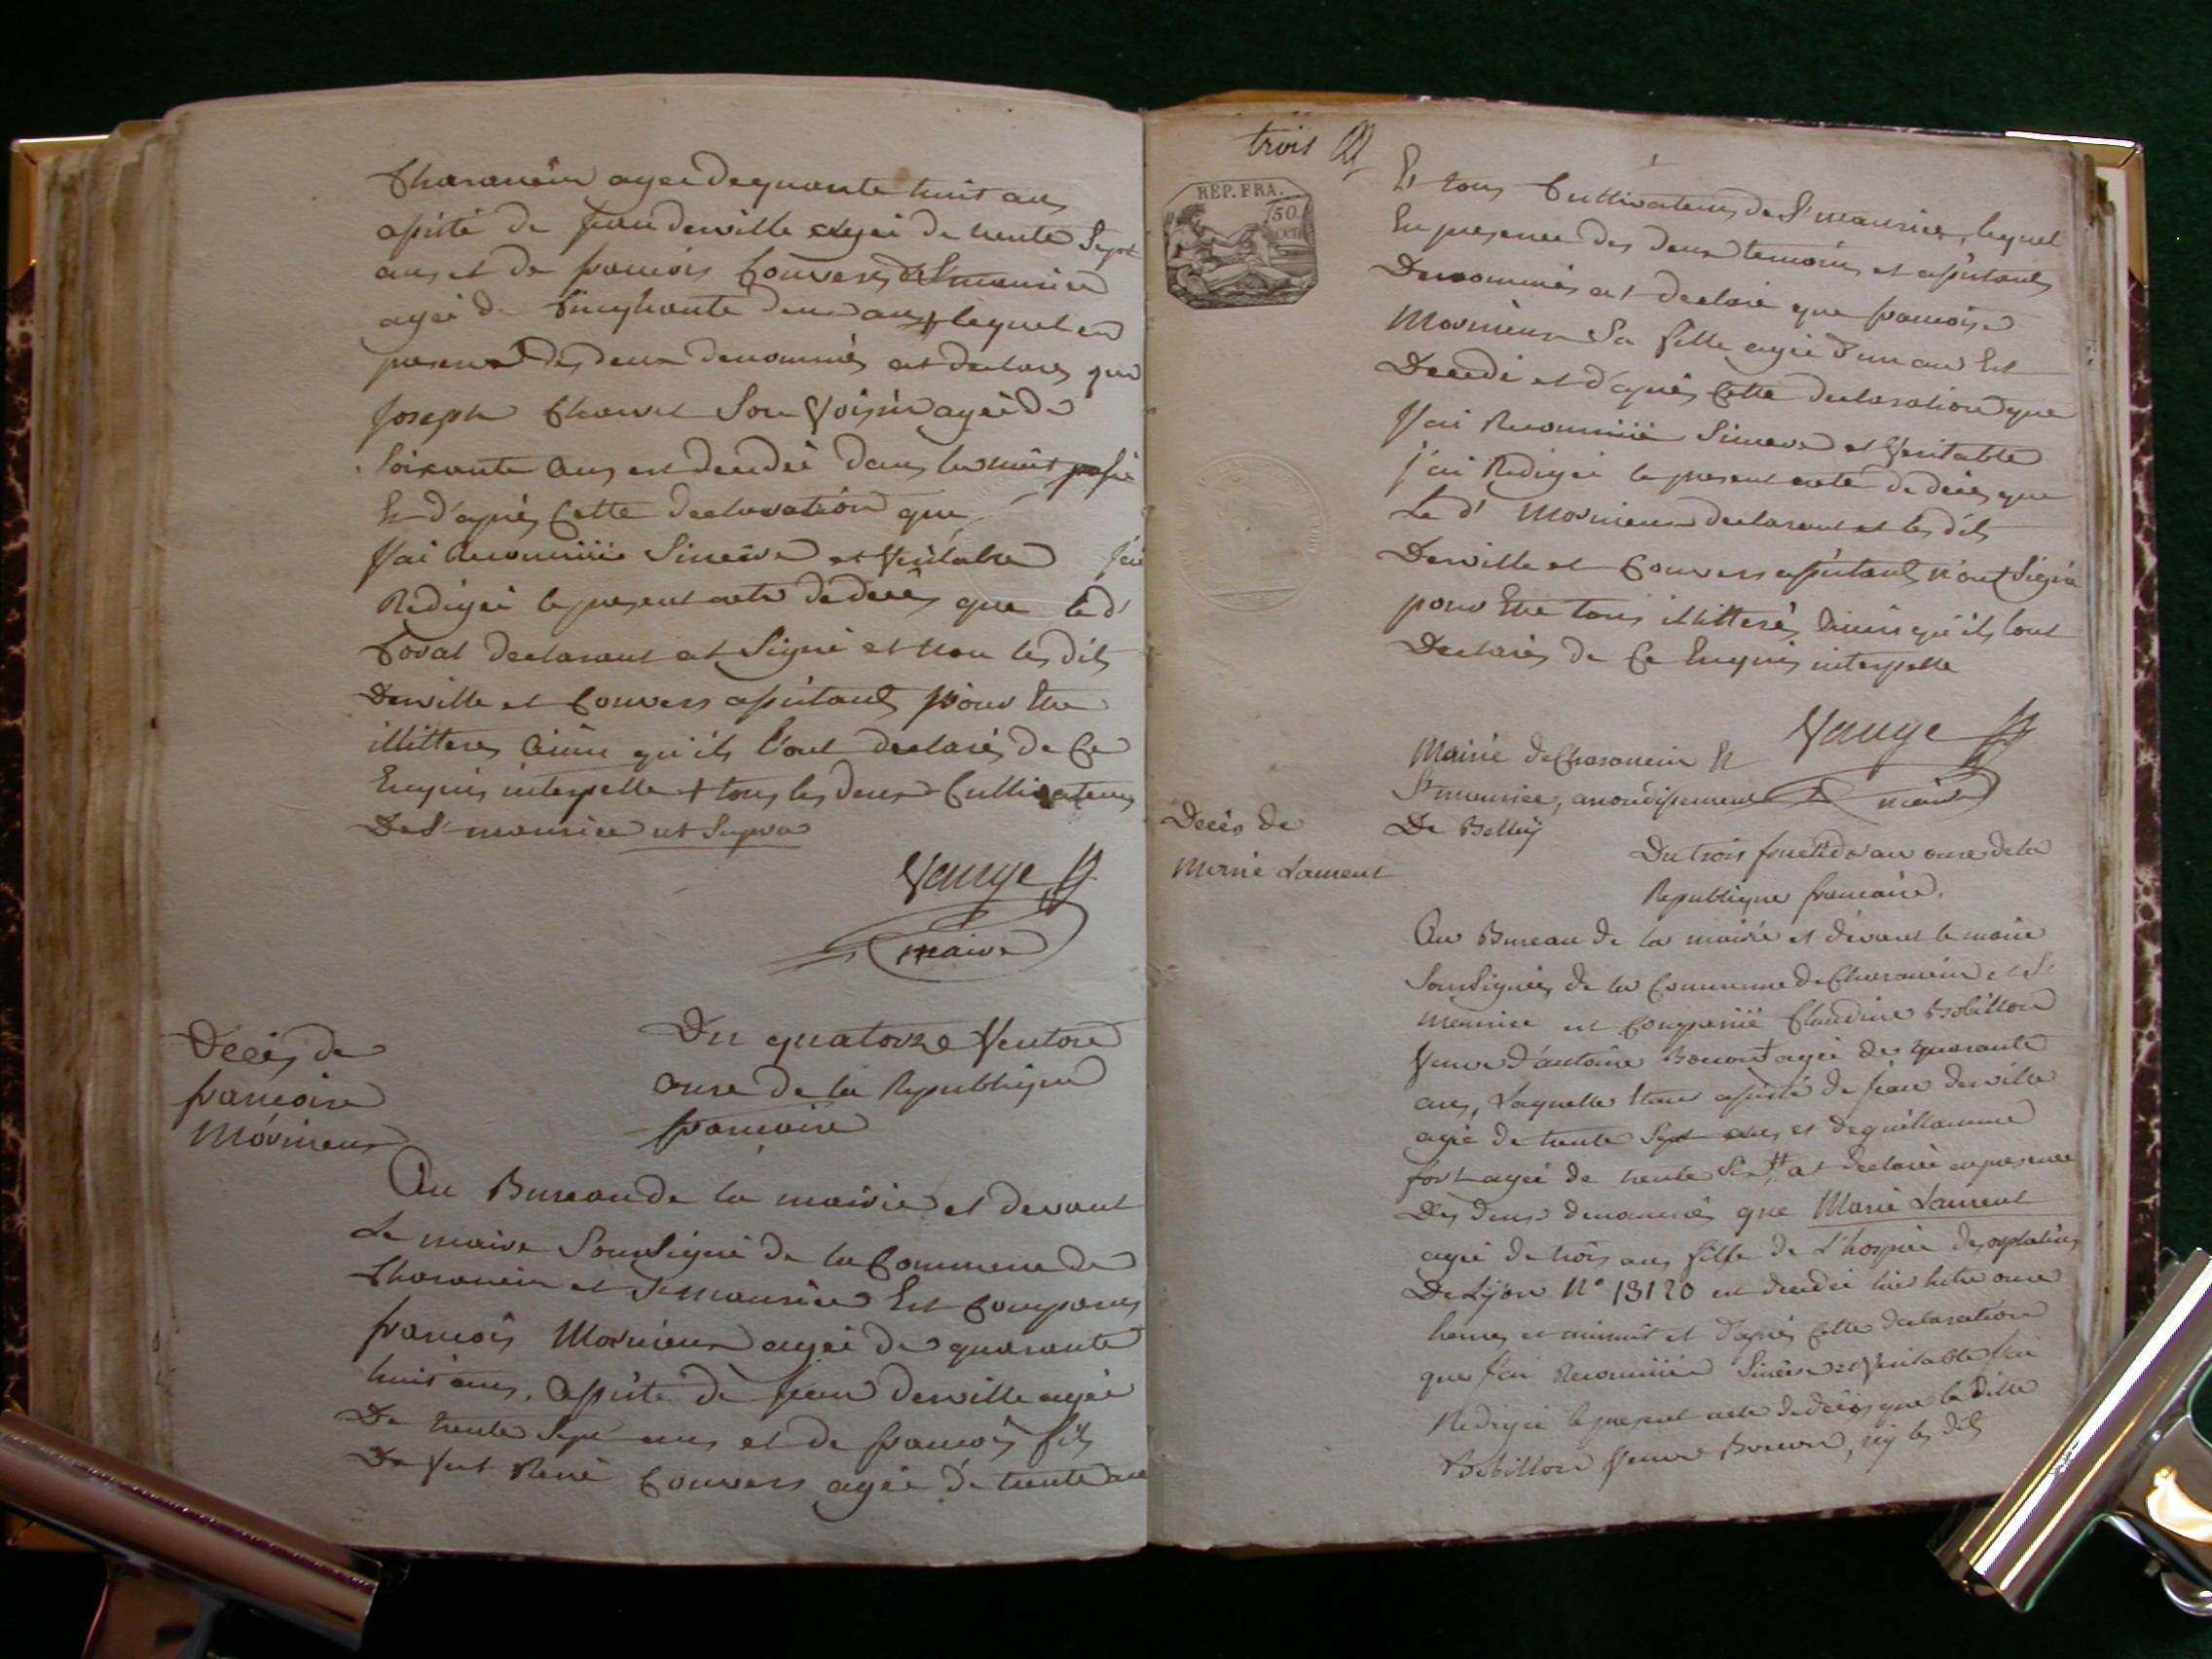 Charancin agée de quarante huit ans
assisté de jean derville agée de trente Sept
ans et de francois Convers de St maurice
agée de Cinquante deux ans + lequel en
presence des deux denommés at declaré que
joseph Son Voisin agée de
Soixante ans est decedée dans la nuit passée
Et d'aprés Cette declaration que
J'ai Reconnüe Sincère et Véritable j'ai
Redigée le present acte de decès que le dt
declarant at Signé et non les dits
Derville et Convers assistants pour être
illitteres Ainsi qu'ils l'ont declarés de Ce
Enquis interpelle + tous les deux Cultivateurs
De St maurice ut Supra
Vauge
maire
Decès de
francoise
Mornieux
Du quatorze Ventose
onze de la Republique
francaise
Au Bureau de la mairie et devant
Le maire Soussigné de la Commune de
Charancin et St maurice Est Comparus
francois Mornieux agée de quarante
huit ans, assisté de jean derville agée
De trente Sept ans et de francois fils
De fut René Convers agée de trente ans
trois
REP. FRA.
50
CEN
Et tous Cultivateurs de St maurice, lequel
En presence des deux temoins et assistants
Denommés at declaré que francoise
Mornieux Sa fille agée d'un an Est
Decedé et d'aprés Cette declaration que
J'ai Reconnüe Sincere et Veritable
j'ai Redigée le present acte de decès que
Le dt Mornieux declarant et les dits
Derville et Convers assistants n'ont Signé
pour Etre tous illitterés Ainsi qu'ils l'ont
Declarés de Ce Enquis interpelle
Vauge
maire
Mairie de Charancin Et
St maurice, arrondissement
De Belley
Decès de
Marie Laurent
Du trois fructidor an onze de la
Republique francaise.
Au Bureau de la mairie et devant le maire
Soussignés de la Commune de Charancin et St
Maurice est Comparüe Claudine Bobillon
Veuve d'antoine agée de quarante
ans, Laquelle assisté de jean derville
agée de trente Sept ans et de guillaume
fort agée de trente Six at declarée en presence
Des deux denommés que Marie Laurent
agée de trois ans fille de L'hospice des orphelins
De Lyon N° 13120 est decedée hier Entre onze
heures et minuit et d'aprés Cette declaration
que J'ai Reconnüe Sincère et Veritable J'ai
Redigée le present acte de decès que la ditte
Bobillon Veuve, ny les dits